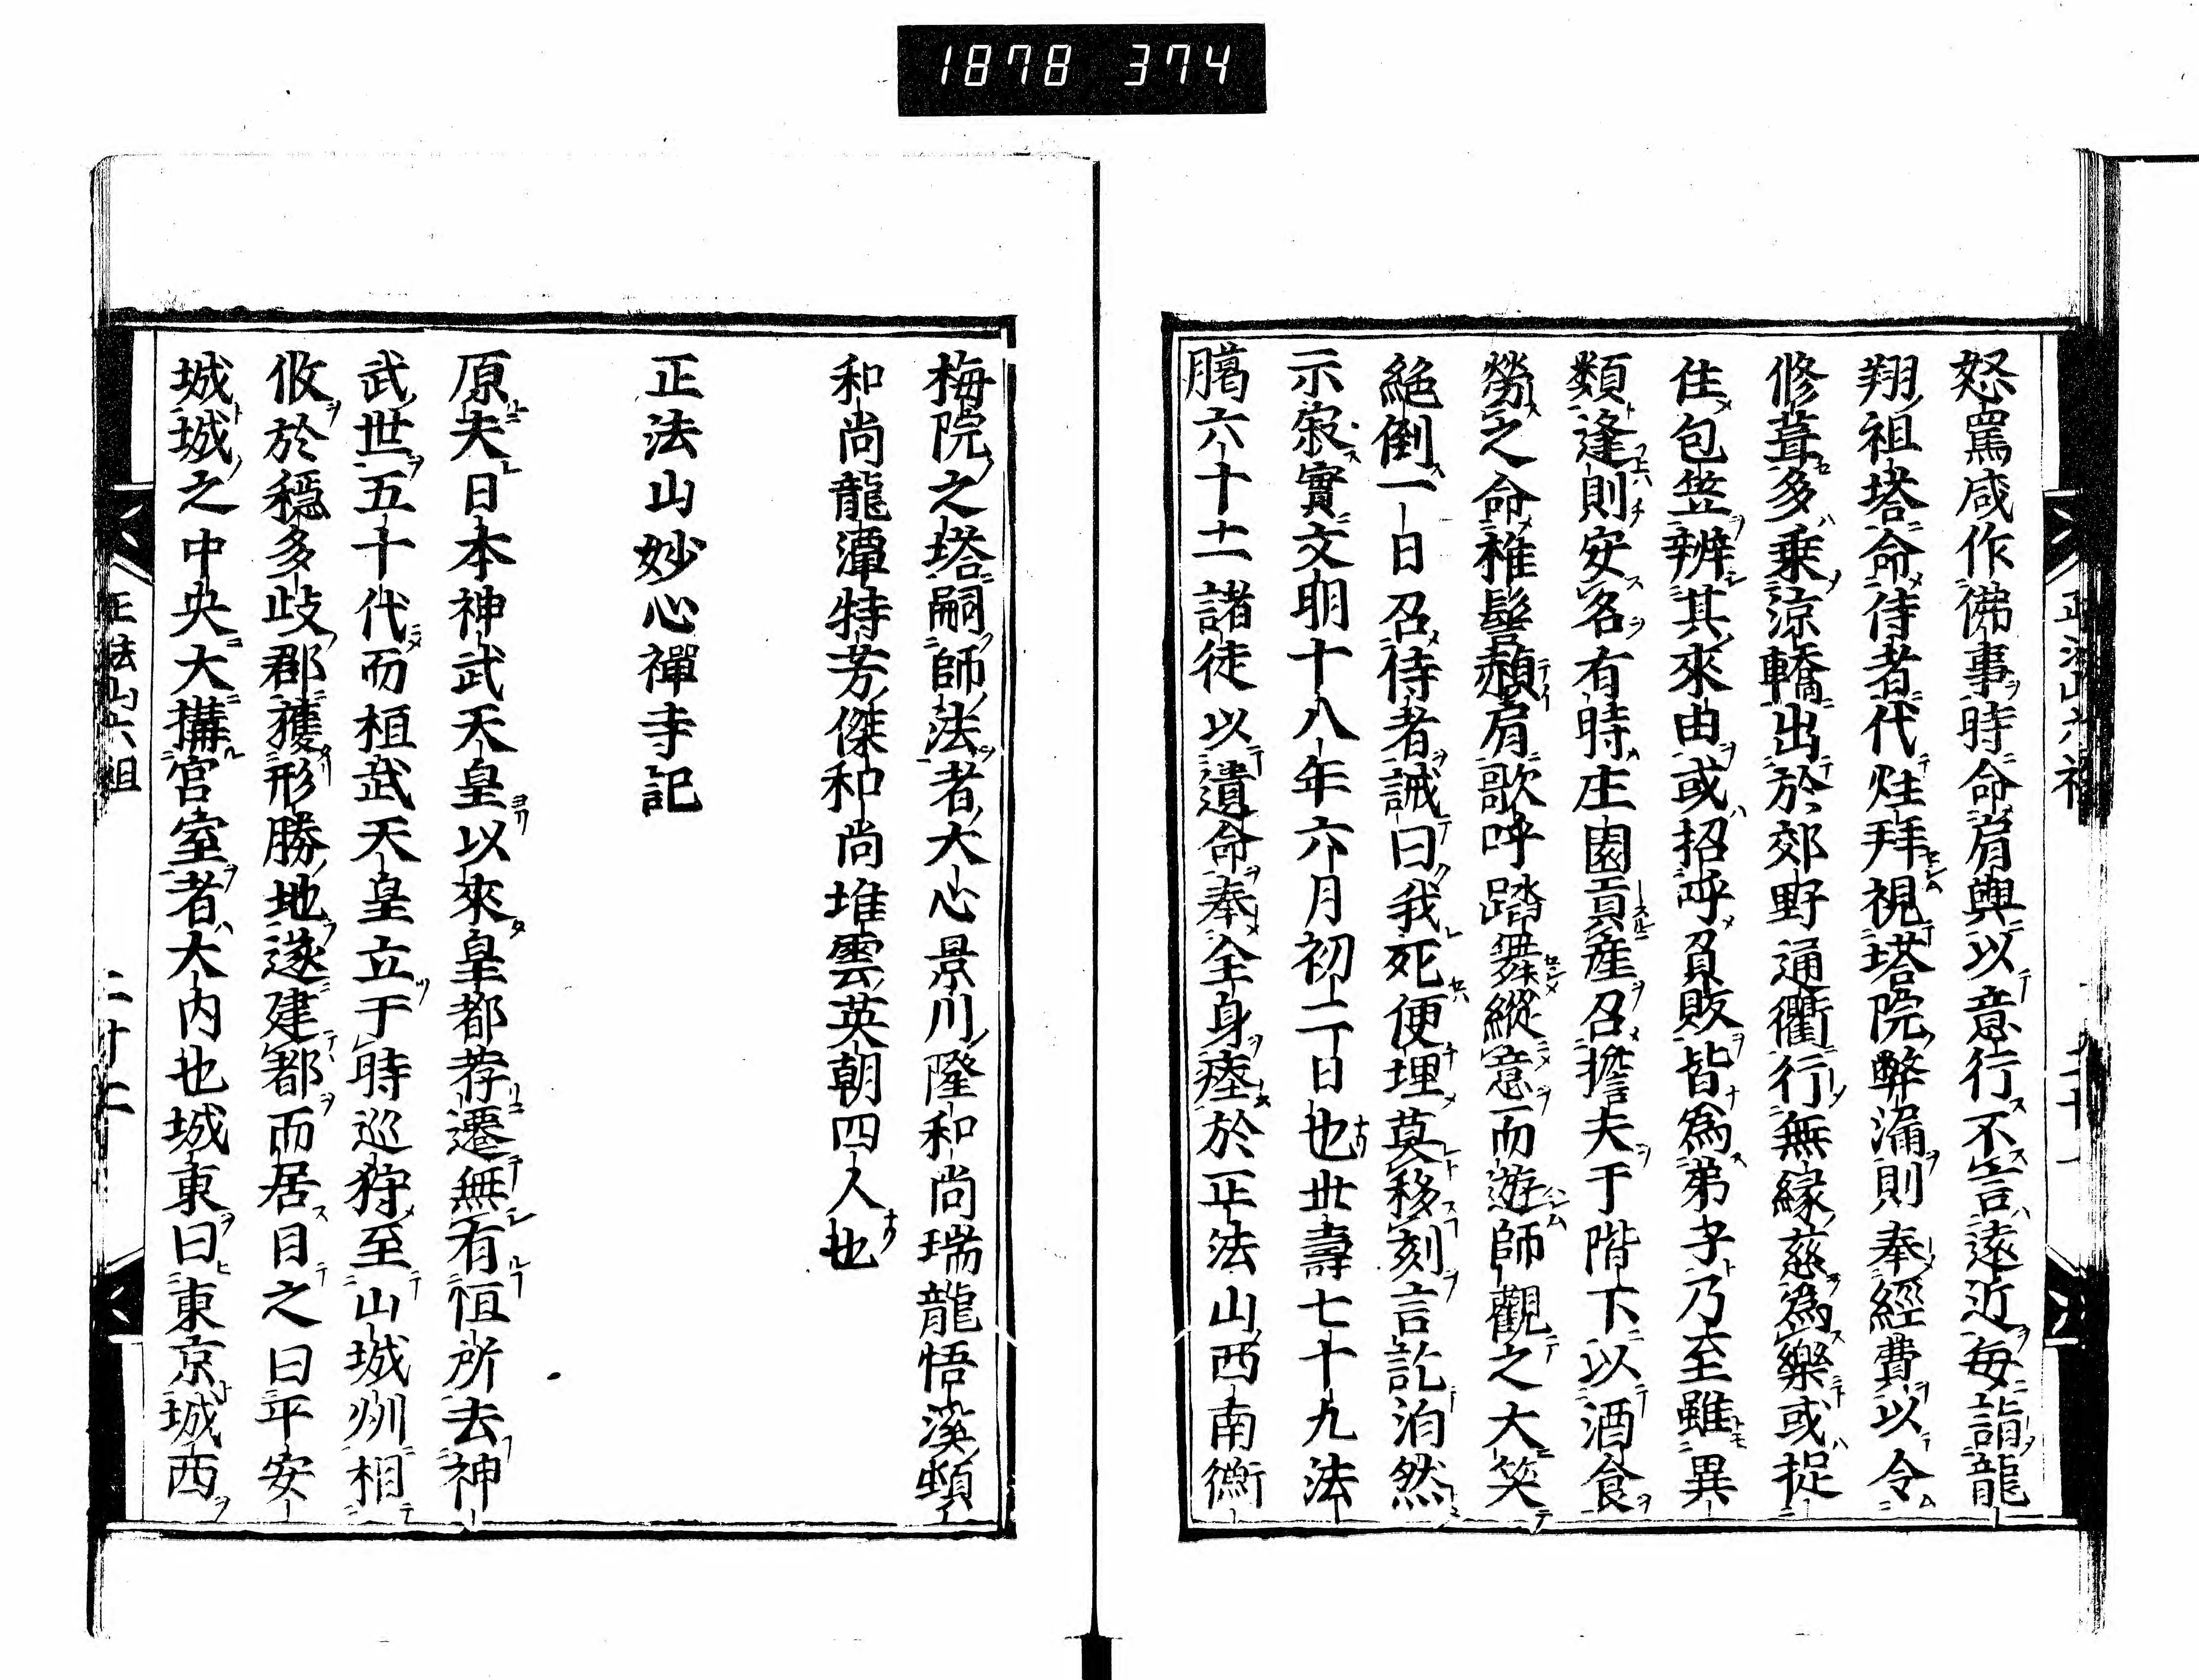 1878 374
怒罵咸作佛事時命肩輿以意行不言遠近每詣龍
翔祖塔命侍者代炷拜視塔院弊漏則奉經費以令
修葺多乘涼轎出於郊野通衢行無緣慈爲樂或捉
住包笠辨其來由或招呼負販皆爲弟子乃至雖異
類逢則安名有時庄園貢產召擔夫于階下以酒食
勞之命椎髻赬肩歌呼踏舞縱意而遊師觀之大笑
絕倒一日召侍者誡曰我死便埋莫移刻言訖泊然
示寂實文明十八年六月初二日也世壽七十九法
臈六十二諸徒以遺命奉全身瘞於正法山西南衡
梅院之塔嗣師法者大心景川隆和尚瑞龍悟溪頓
和尚龍潭特芳傑和尚堆雲英朝四人也
正法山妙心禪寺記
原夫日本神武天皇以來皇都荐遷無有恒所去神
武世五十代而桓武天皇立于時巡狩至山城州相
攸於穩多歧郡獲形勝地遂建都而居目之曰平安
城城之中央大搆宮室者大內也城東曰東京城西
正法山六祖 二十二